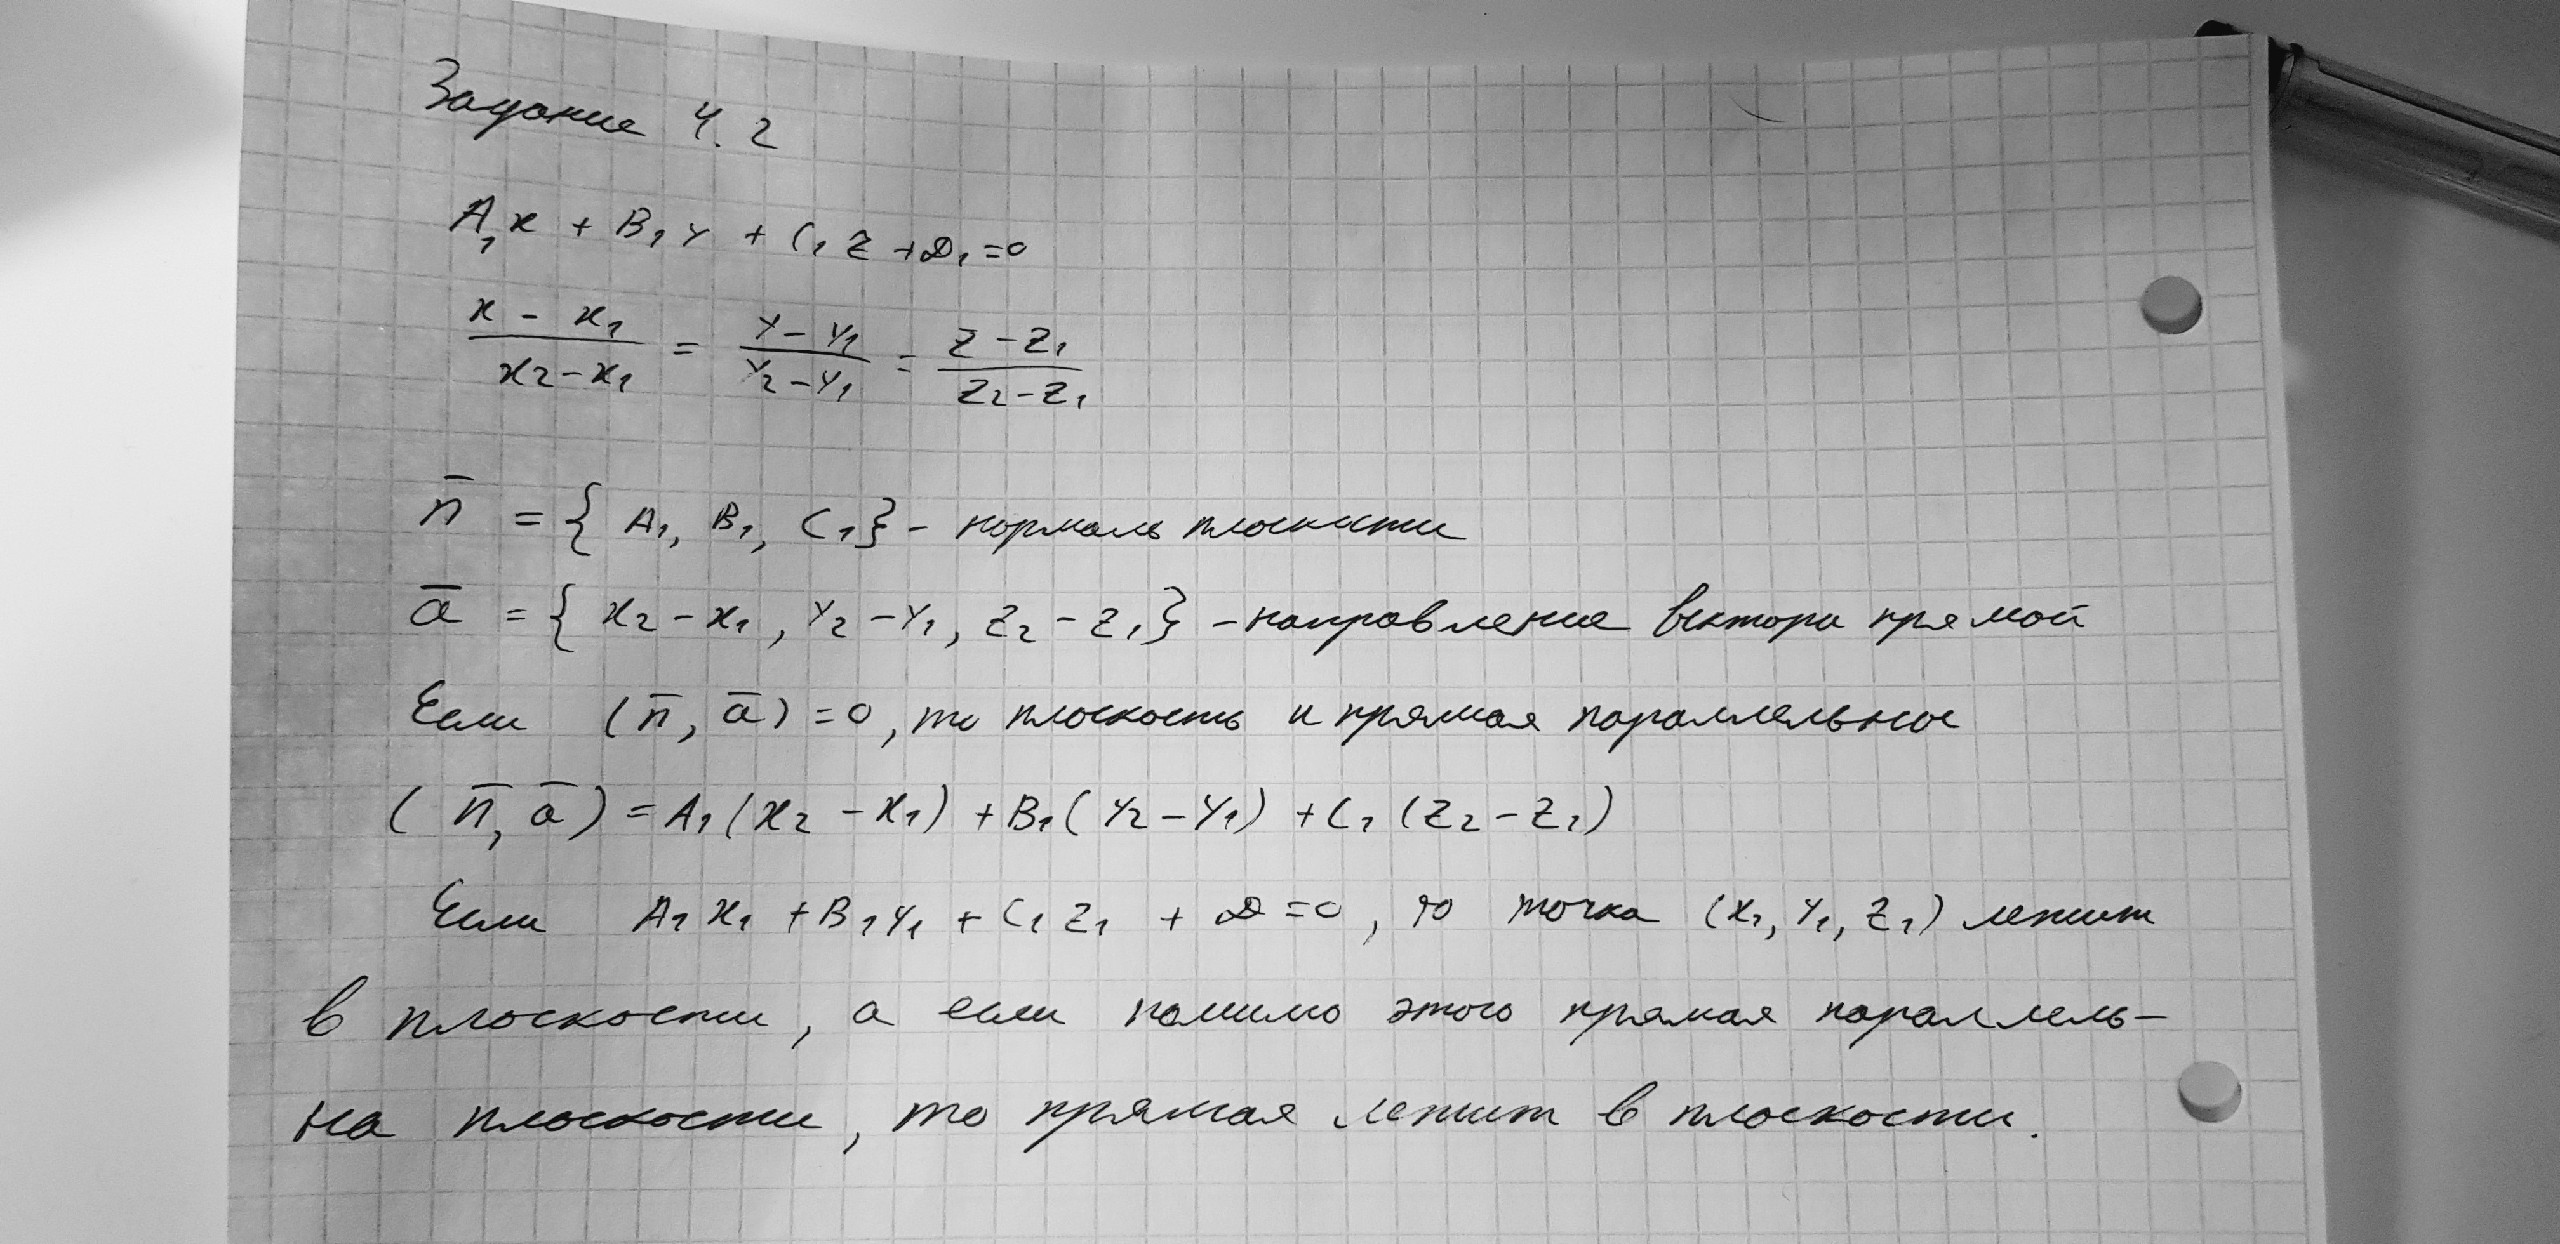 Задание 4.2
A₁x + B₁y + C₁z + D₁ = 0
(x - x₁)/(x₂ - x₁) = (y - y₁)/(y₂ - y₁) = (z - z₁)/(z₂ - z₁)
n̄ = {A₁, B₁, C₁} - нормаль плоскости
ā = {x₂ - x₁, y₂ - y₁, z₂ - z₁} - направление вектора прямой
Если (n̄, ā) = 0, то плоскость и прямая параллельные
(n̄, ā) = A₁(x₂ - x₁) + B₁(y₂ - y₁) + C₁(z₂ - z₁)
Если A₁x₁ + B₁y₁ + C₁z₁ + D = 0, то точка (x₁, y₁, z₁) лежит
в плоскости, а если помимо этого прямая параллель-
на плоскости, то прямая лежит в плоскости.